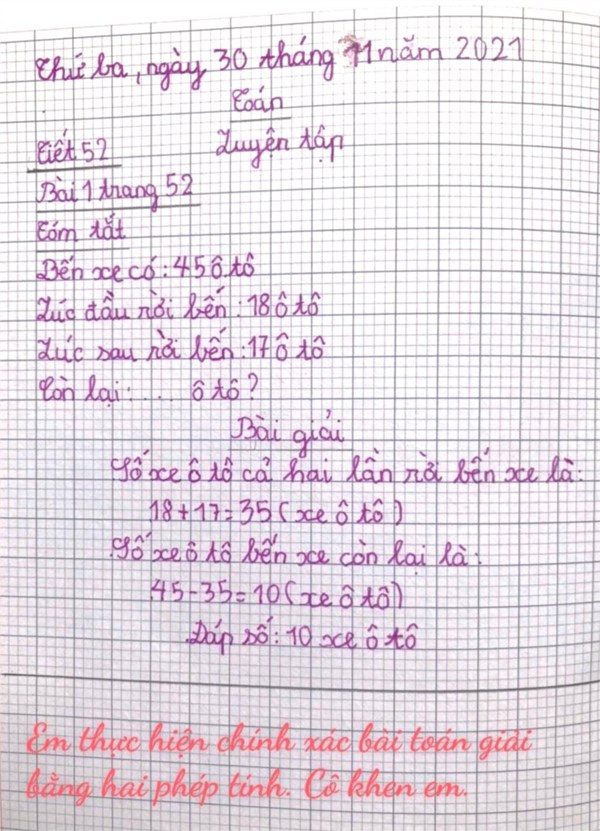 Thứ ba, ngày 30 tháng 11 năm 2021
Toán
Tiết 52 Luyện tập
Bài 1 trang 52
Tóm tắt
Bến xe có: 45 ô tô
Lúc đầu rời bến: 18 ô tô
Lúc sau rời bến: 17 ô tô
Còn lại: .... ô tô?
Bài giải
Số xe ô tô cả hai lần rời bến xe là:
18+17=35 (xe ô tô)
Số xe ô tô bến xe còn lại là:
45-35=10 (xe ô tô)
Đáp số: 10 xe ô tô
Em thực hiện chính xác bài toán giải
bằng hai phép tính. Cô khen em.